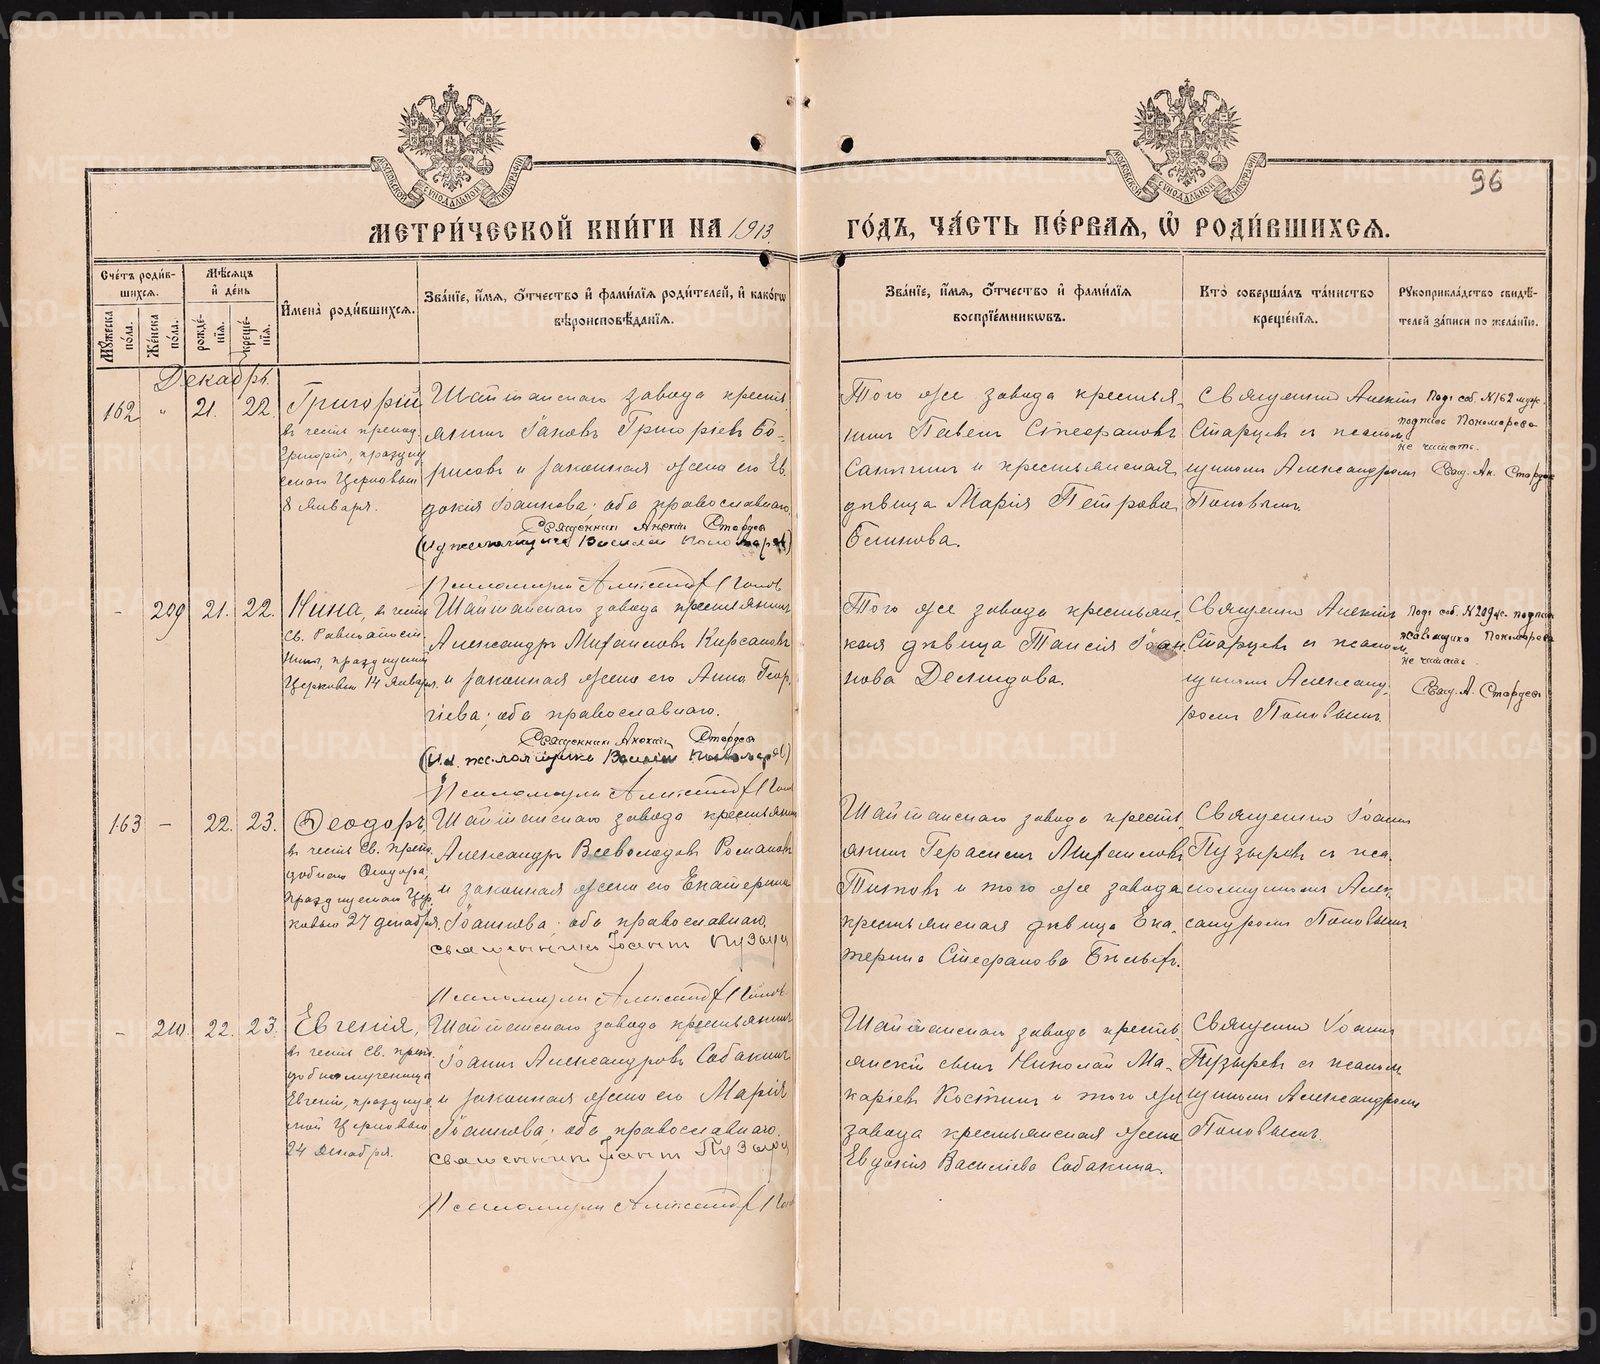 96
МОСКОВСКОЙ СѴНОДАЛЬНОЙ ТИПОГРАФІИ
МОСКОВСКОЙ СѴНОДАЛЬНОЙ ТИПОГРАФІИ
МЕТРИ́ЧЕСКОЙ КНИ́ГИ НА 1913
ГО́ДЪ, ЧА́СТЬ ПЕ́РВАЯ, Ѡ҆ РОДИ́ВШИХСЯ.
Сче́тъ роди́в-
шихся.
Му́жеска по́ла.
Же́нска по́ла.
Мѣ́сяцъ и҆ де́нь
рожде́-
нїя.
креще́-
нїя.
И҆мена̀ роди́вшихся.
Зва́нїе, и҆́мя, о҆́тчество и҆ фами́лїя роди́телей, и҆ како́гѡ
вѣроисповѣ́данїя.
Зва́нїе, и҆́мя, о҆́тчество и҆ фами́лїя
воспрїе́мникѡвъ.
Кто̀ соверша́лъ та́инство
креще́нїя.
Рукоприкла́дство свидѣ́-
телей за́писи по жела́нїю.
Декабрь.
162 „ 21. 22.
Григорій
въ честь препод.
Григорія, праздну
емаго Церковью
8 Января.
Шайтанскаго завода кресть
янинъ Іаковъ Григорьевъ Бо-
рисовъ и законная жена его Ев
докія Іоаннова; оба православнаго.
Священник Алексій Старцев
Василій Пономарев)
Псаломщик Александр Попов
Того же завода крестья
нинъ Павелъ Стефановъ
Саннинъ и крестьянская
дѣвица Марія Петрова
Блинова.
Священник Алексій
Старцевъ съ псалом
щикомъ Александромъ
Поповымъ.
Подъ соб. №162 муж.
подпись Пономарева
не читать.
Свящ. Ал. Старцев
- 209 21. 22.
Нина, въ честь
Св. Равноапост.
Нины, празднуемой
Церковью 14 Января.
Шайтанскаго завода крестьянинъ
Александръ Михаиловъ Кирсановъ
и законная жена его Анна Геор
гіева; оба православнаго.
Священник Алексій Старцев
Василій Пономарев)
Псаломщик Александр Попов
Того же завода крестьян
ская дѣвица Таисія Іоан
нова Демидова.
Священник Алексій
Старцевъ съ псалом
щикомъ Александ
ромъ Поповымъ
Подъ соб. №209 ж. подпись
Пономарева
не читать.
Свящ. А. Старцев
163 - 22. 23.
Ѳеодоръ,
въ честь Св. Препо
добнаго Ѳеодора,
празднуемаго Цер
ковью 27 декабря.
Шайтанскаго завода крестьянинъ
Александръ Всеволодовъ Романовъ
и законная жена его Екатерина
Іоаннова; оба православнаго.
священникъ Іоаннъ Пузыре
Псаломщик Александр Попов
Шайтанскаго завода кресть
янинъ Герасимъ Михаиловъ
Титовъ и того же завода
крестьянская дѣвица Ека
терина Стефанова Бѣлыхъ.
Священник Іоаннъ
Пузыревъ съ пса
ломщикомъ Алек
сандромъ Поповымъ
- 210. 22. 23.
Евгенія,
въ честь Св. препо
добномученицы
Евгеніи, празднуе
мой Церковью
24 декабря.
Шайтанскаго завода крестьянинъ
Іоаннъ Александровъ Собакинъ
и законная жена его Марія
Іоаннова; оба православнаго.
священникъ Іоаннъ Пузыре
Псаломщик Александр Попов
Шайтанскаго завода кресть
янскій сынъ Николай Ма-
каріевъ Костинъ и того же
завода крестьянская жена
Евдокія Василіева Собакина.
Священник Іоаннъ
Пузыревъ съ псалом
щикомъ Александромъ
Поповымъ.
METRIKI.GASO-URAL.RU